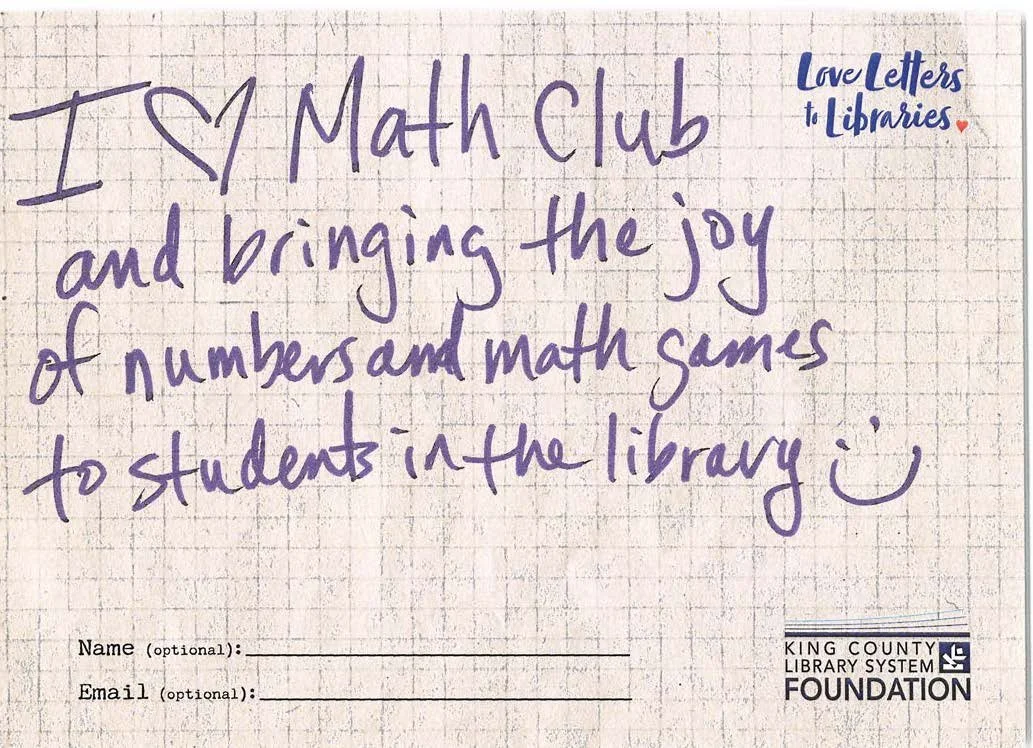 I ♡ Math Club
Love Letters
to Libraries
and bringing the joy
of numbers and math games
to students in the library :)
Name (optional):
Email (optional):
KING COUNTY
LIBRARY SYSTEM
FOUNDATION